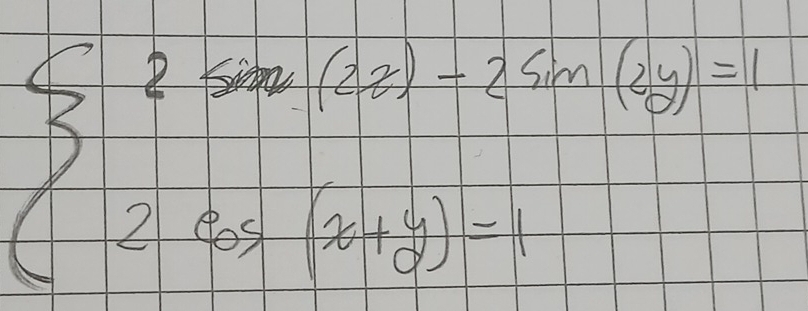 2 sin (2x) - 2 sin (2y) = 1
2 cos (x+y) = 1